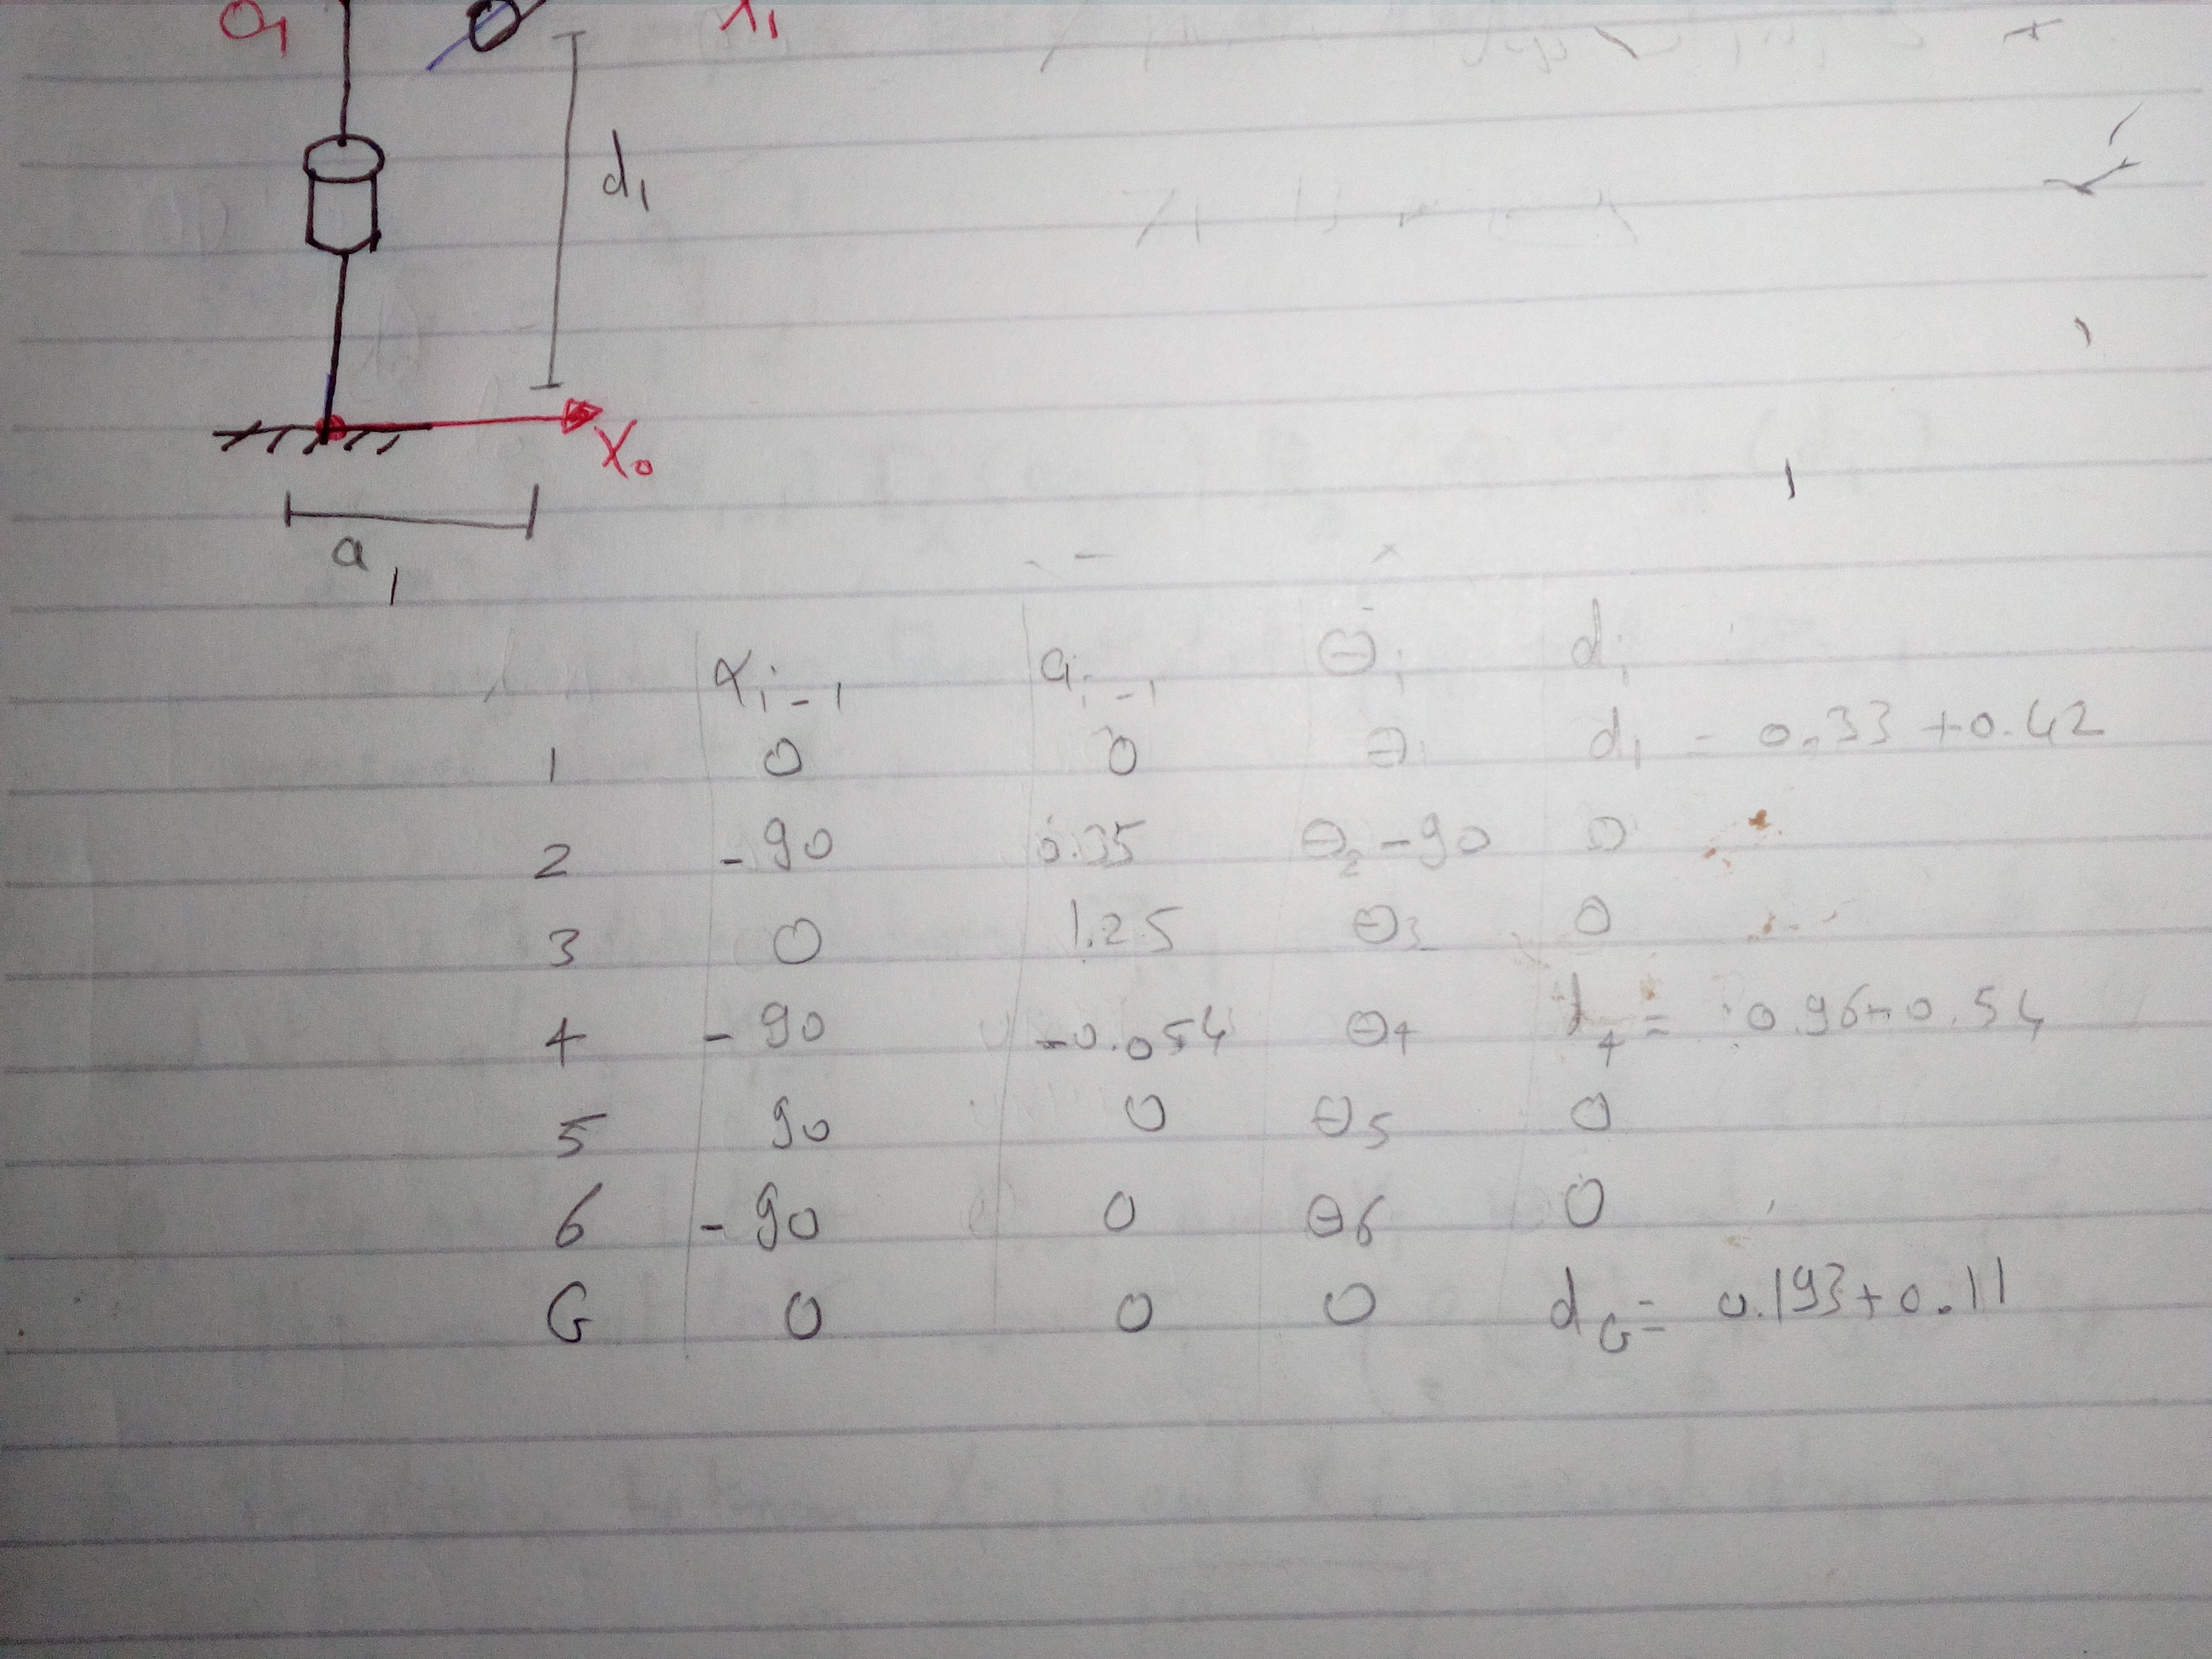 O₁ X₁
d₁
X₀
a₁
αᵢ₋₁ aᵢ₋₁ Θᵢ dᵢ
1 0 0 Θ₁ d₁ = 0.33 + 0.42
2 -90 0.35 Θ₂ - 90 0
3 0 1.25 Θ₃ 0
4 -90 -0.054 Θ₄ d₄ = 0.96+0.54
5 90 0 Θ5 0
6 -90 0 Θ6 0
G 0 0 0 d_G = 0.193+0.11